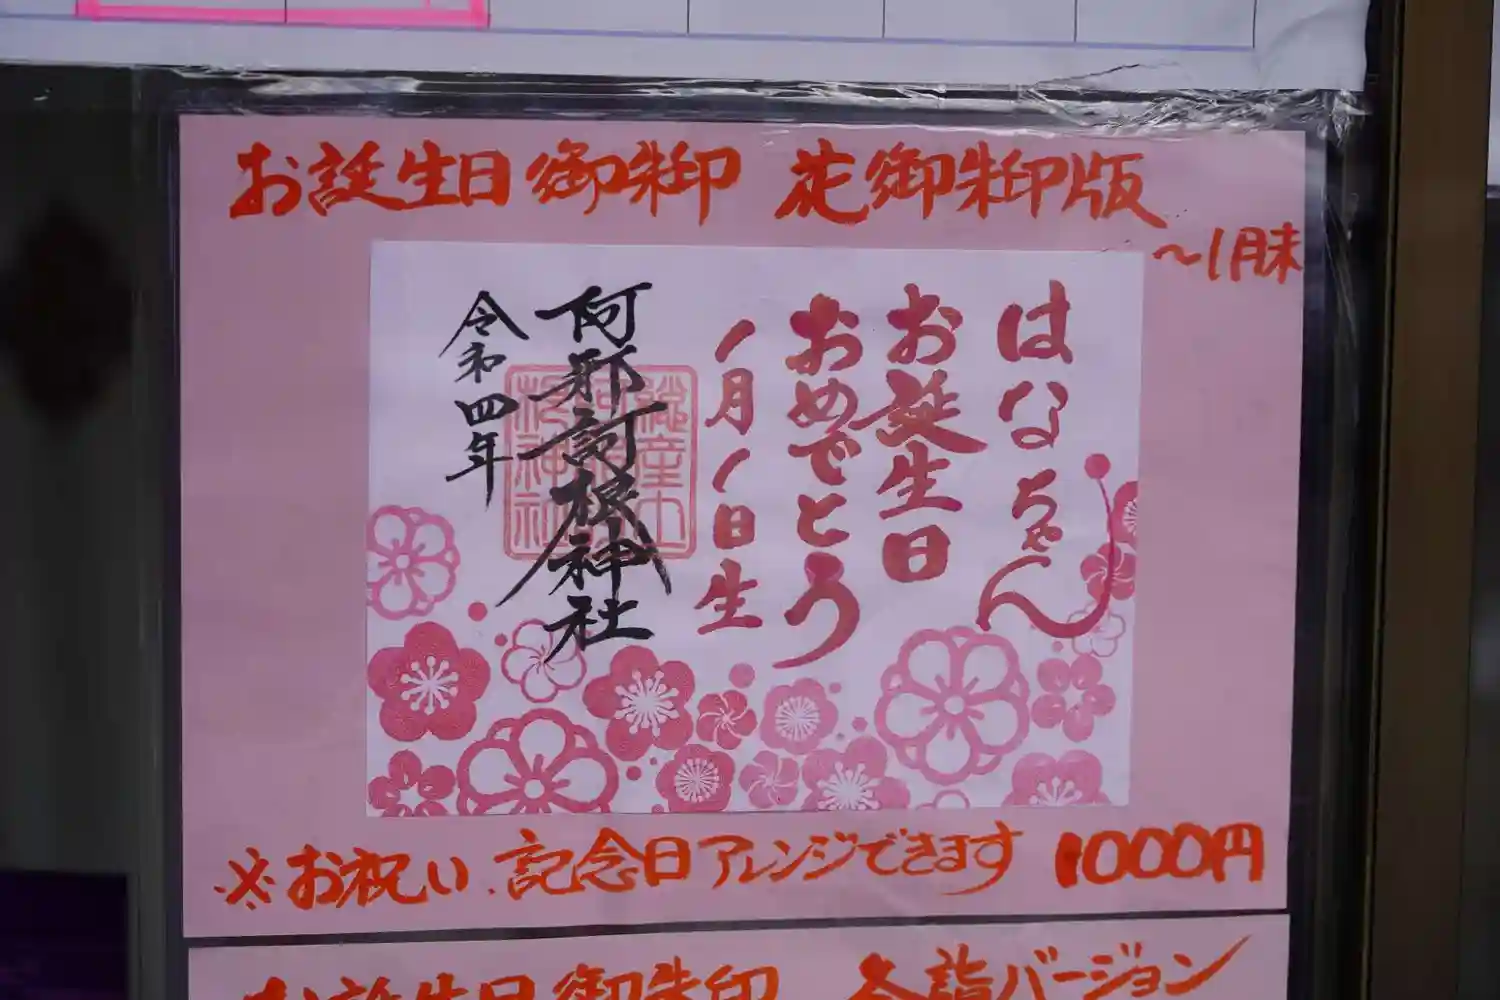 お誕生日御朱印 花御朱印版
～1月末
はなちゃん
お誕生日
おめでとう
1月1日生
阿邪訶根神社
令和四年
※お祝い、記念日アレンジできます 1000円
お誕生日御朱印 冬詣バージョン